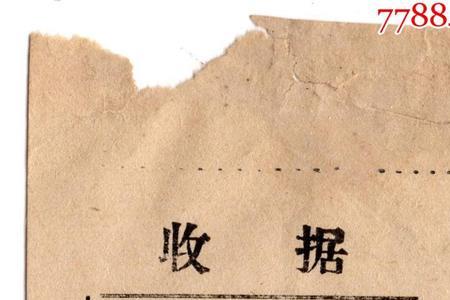 7788.
收据